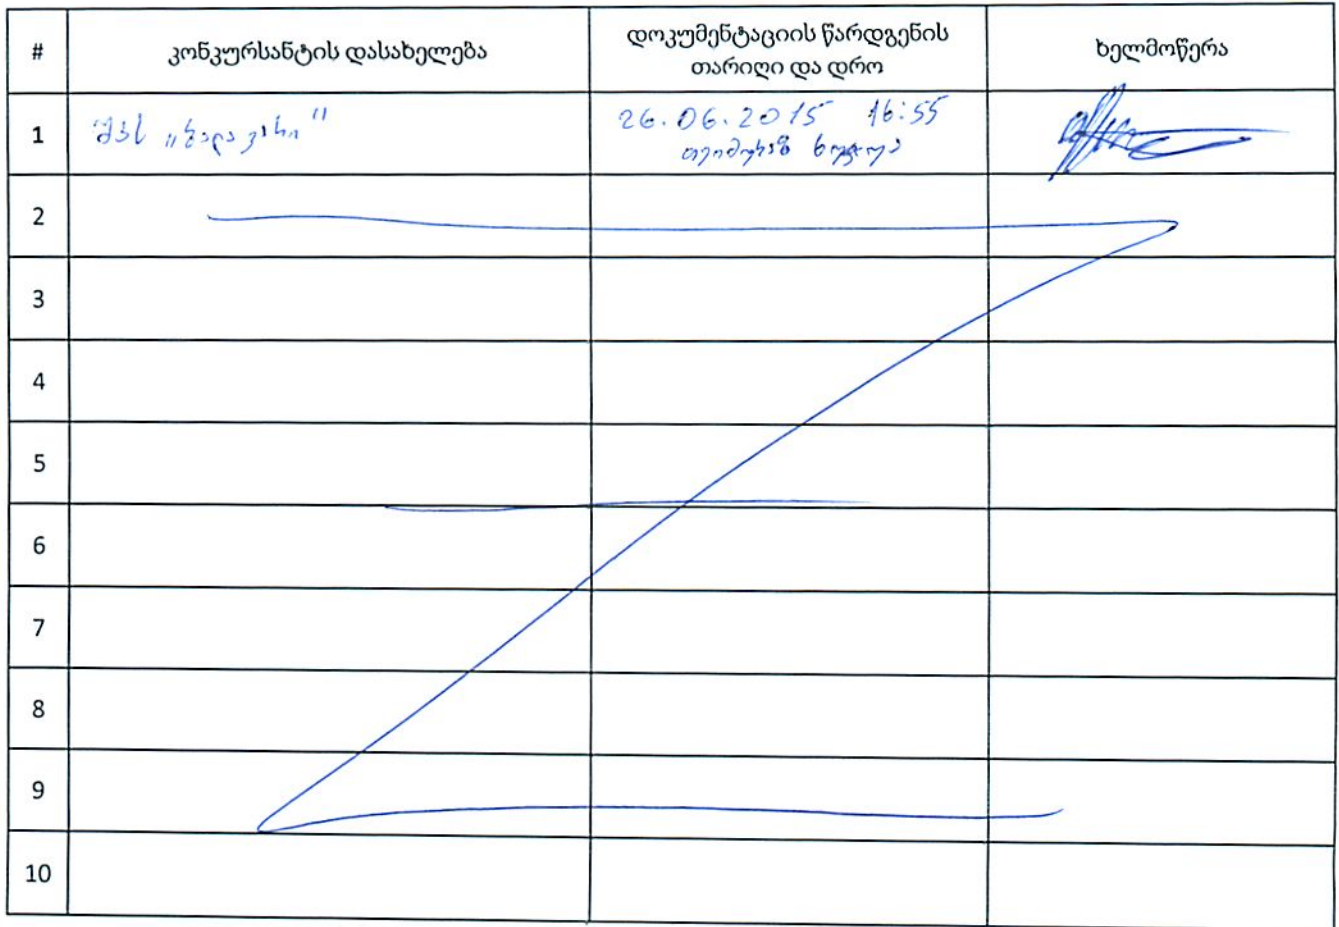 #
კონკურსანტის დასახელება
დოკუმენტაციის წარდგენის
თარიღი და დრო
ხელმოწერა
1
შპს
26.06.2015 16:55
თეიმურაზ
2
3
4
5
6
7
8
9
10